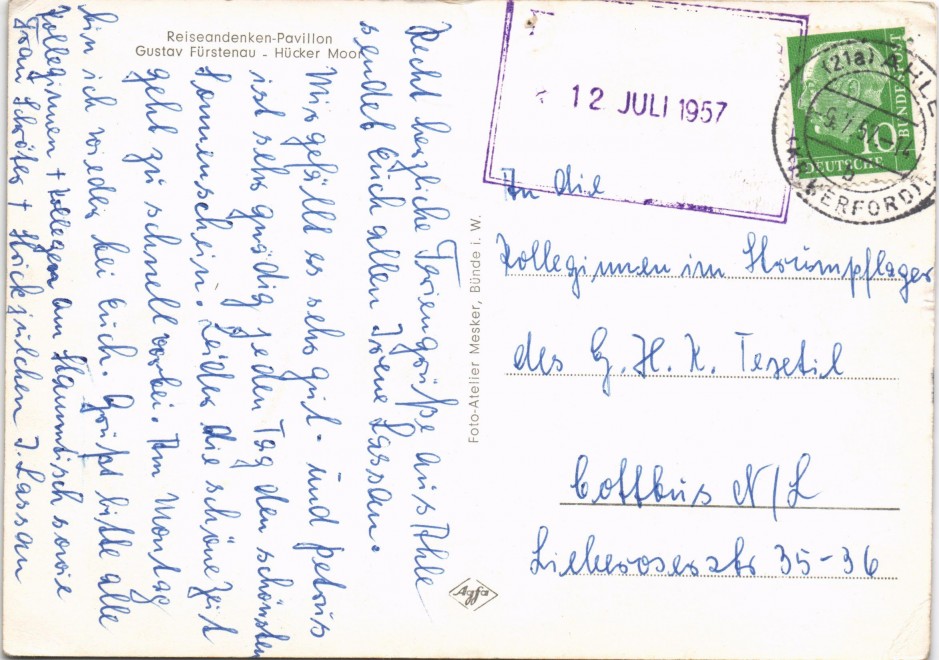 Reiseandenken-Pavillon
Gustav Fürstenau - Hücker Moor
Recht herzliche Feriengrüße aus Ahle
sendet Euch allen Irene Lassan.
Mir gefällt es sehr gut. und petrus
ist sehr gnädig jeden Tag den schönsten
Sonnenschein. Leider die schöne Zeit
geht zu schnell vorbei. Am Montag
bin ich wieder bei Euch. Grüßt bitte alle
Kolleginnen + Kollegen am Stammtisch sowie
Frau Schröter + I. Lassan
Foto-Atelier Mesker, Bünde i. W.
Agfa
12 JULI 1957
(21a) AHLE
9.7.57
b
HERFORD)
10
DEUTSCHE
BUNDESPOST
An die
Kolleginnen im Strumpflager
des G. H. K. Textil
Cottbus N/L
Lieberoserstr 35-36